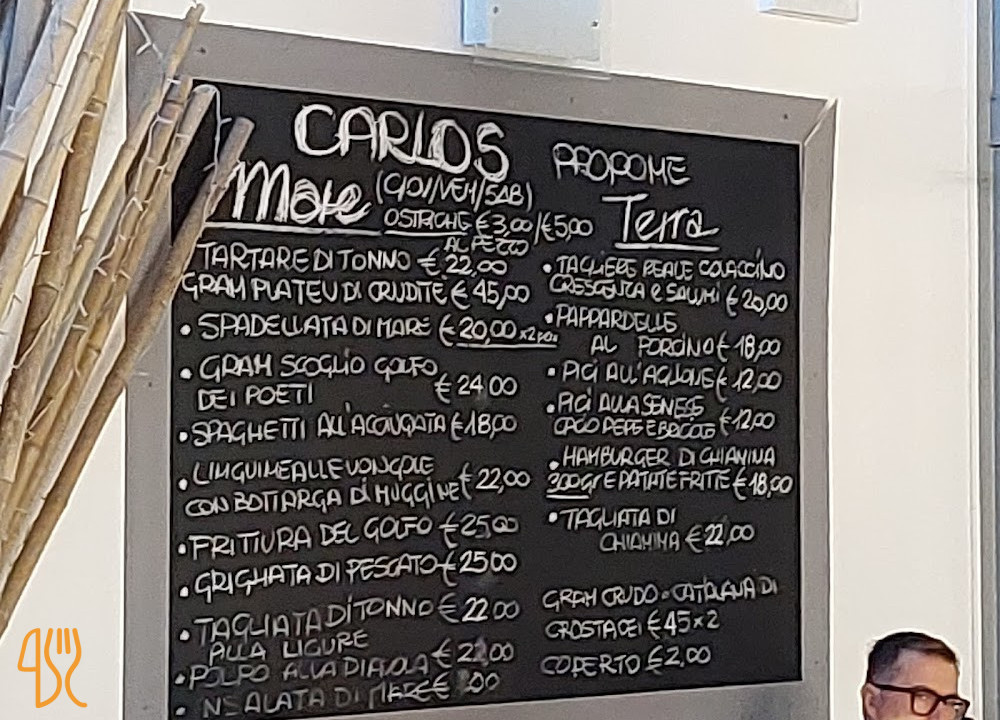 CARLOS PROPOME
Mare (GIO/VEN/SAB)
OSTRICHE € 3,00/€5,00
AL PEZZO
TARTARE DI TONNO € 22,00
GRAM PLATEU DI CRUDITE € 45,00
• SPADELLATA DI MARE € 20,00 x2
• GRAM SCOGLIO GOLFO
DEI POETI € 24 00
• SPAGHETTI ALL'ACCIUGATA € 18,00
• LINGUINE ALLE VONGOLE
CON BOTTARGA DI MUGGINE € 22,00
• FRITTURA DEL GOLFO € 25 00
• GRIGLIATA DI PESCATO € 25 00
• TAGLIATA DI TONNO € 22 00
ALLA LIGURE
• POLPO ALLA DIAVOLA € 22,00
• INSALATA DI MARE €
Terra
• TAGLIERE REALE COLACCINO
CRESCENTA e SALUMI € 20,00
• PAPPARDELLE
AL PORCINO € 18,00
• PICI ALL'AGLIONE € 12,00
• PICI ALLA SENESE
CACIO PEPE E BACCELLI € 12,00
• HAMBURGER DI CHIANINA
300gr E PATATE FRITTE € 18,00
• TAGLIATA DI
CHIANINA € 22,00
GRAM CRUDO e CATALANA DI
CROSTACEI € 45 x 2
COPERTO € 2,00